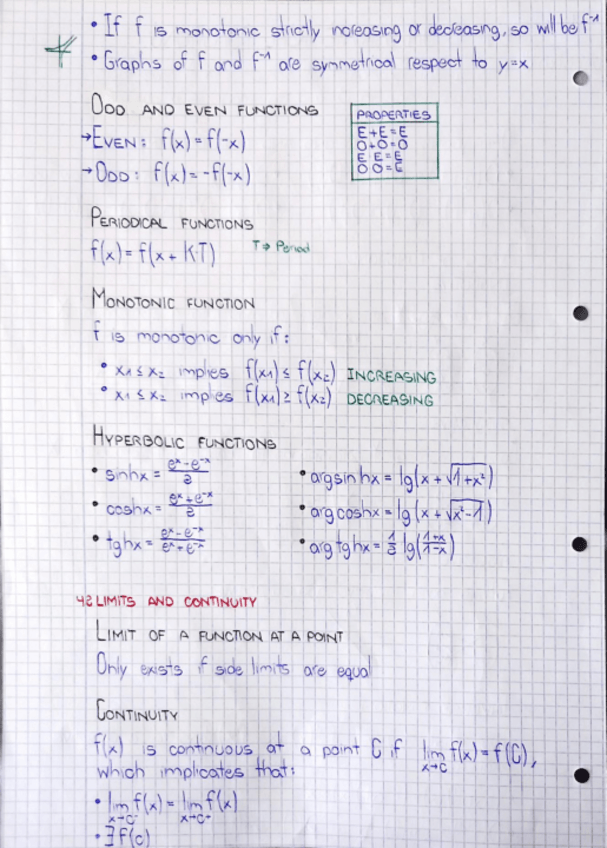 • If f is monotonic strictly increasing or decreasing, so will be f⁻¹
• Graphs of f and f⁻¹ are symmetrical respect to y=x
ODD AND EVEN FUNCTIONS
PROPERTIES
E+E=E
O+O=O
E·E=E
O·O=E
→EVEN: f(x)=f(-x)
→ODD: f(x)=-f(-x)
PERIODICAL FUNCTIONS
f(x)=f(x+KT) T⇒ Period
MONOTONIC FUNCTION
f is monotonic only if:
• x₁≤x₂ implies f(x₁)≤f(x₂) INCREASING
• x₁≤x₂ implies f(x₁)≥f(x₂) DECREASING
HYPERBOLIC FUNCTIONS
• sinhx = (eˣ-e⁻ˣ)/2 • argsinhx = lg(x+√(1+x²))
• coshx = (eˣ+e⁻ˣ)/2 • argcoshx = lg(x+√(x²-1))
• tghx = (eˣ-e⁻ˣ)/(eˣ+e⁻ˣ) • argtghx = ½ lg((1+x)/(1-x))
LIMITS AND CONTINUITY
LIMIT OF A FUNCTION AT A POINT
Only exists if side limits are equal
CONTINUITY
f(x) is continuous at a point C if lim x→c f(x)=f(C),
which implicates that:
• lim x→c⁻ f(x) = lim x→c⁺ f(x)
• ∃f(c)